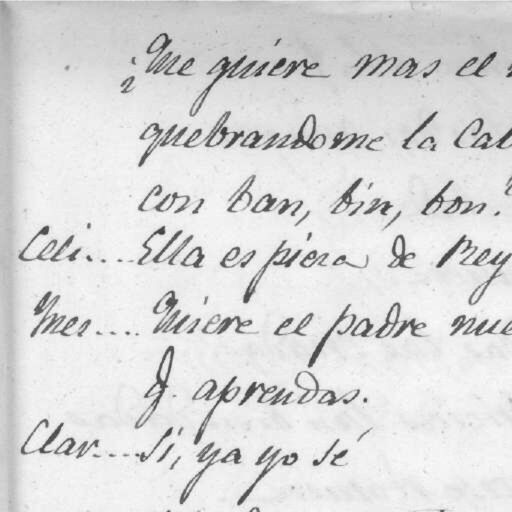 ¿Que quiere mas el
quebrandome la
con ban, bin, bon.
Celi... Ella es pieza de Rey
Ynes... Quiere el padre
q. aprendas.
Clar... Si, ya yo sé